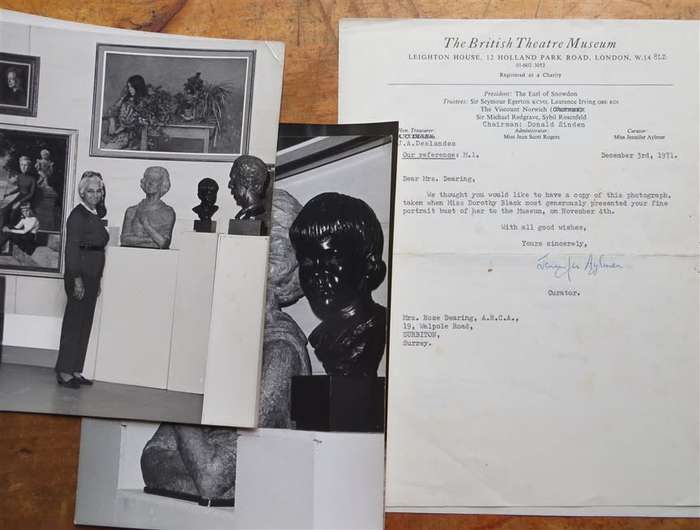 The British Theatre Museum
LEIGHTON HOUSE, 12 HOLLAND PARK ROAD, LONDON, W.14 8LZ
01-602 3052
Registered as a Charity
President: The Earl of Snowdon
Trustees: Sir Seymour Egerton KCVO, Laurence Irving OBE RDI
The Viscount Norwich
Sir Michael Redgrave, Sybil Rosenfeld
Chairman: Donald Sinden
Hon Treasurer
J.A.Deslandes
Administrator:
Miss Jean Scott Rogers
Curator
Miss Jennifer Aylmer
Our reference: M.1.
December 3rd, 1971.
Dear Mrs. Dearing,
We thought you would like to have a copy of this photograph,
taken when Miss Dorothy Black most generously presented your fine
portrait bust of her to the Museum, on November 4th.
With all good wishes,
Yours sincerely,
Jennifer Aylmer
Curator.
Mrs. Rose Dearing, A.R.C.A.,
19, Walpole Road,
SURBITON,
Surrey.